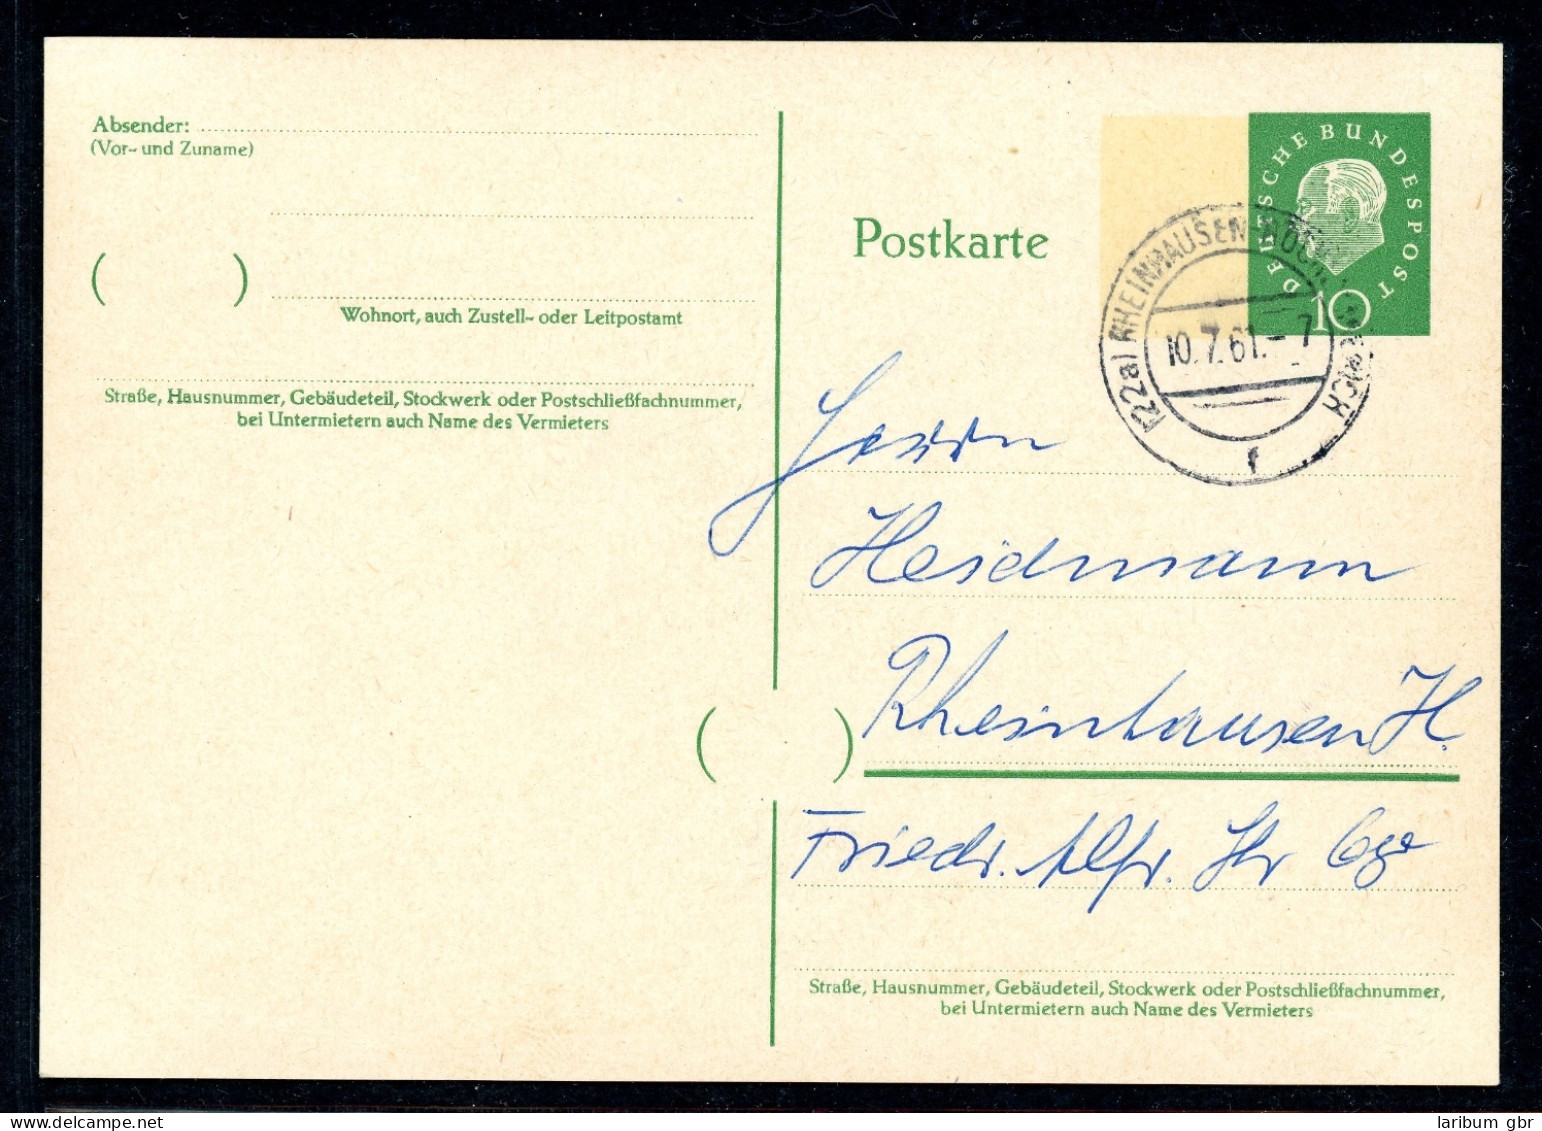 Absender:
(Vor- und Zuname)
( )
Wohnort, auch Zustell- oder Leitpostamt
Straße, Hausnummer, Gebäudeteil, Stockwerk oder Postschließfachnummer,
bei Untermietern auch Name des Vermieters
Postkarte
DEUTSCHE BUNDESPOST
10
(22a) RHEINHAUSEN
10.7.61.-7
f
Herrn
Heidmann
Rheinhausen H.
( )
Friedr. Alfr. Str
Straße, Hausnummer, Gebäudeteil, Stockwerk oder Postschließfachnummer,
bei Untermietern auch Name des Vermieters
laribum gbr